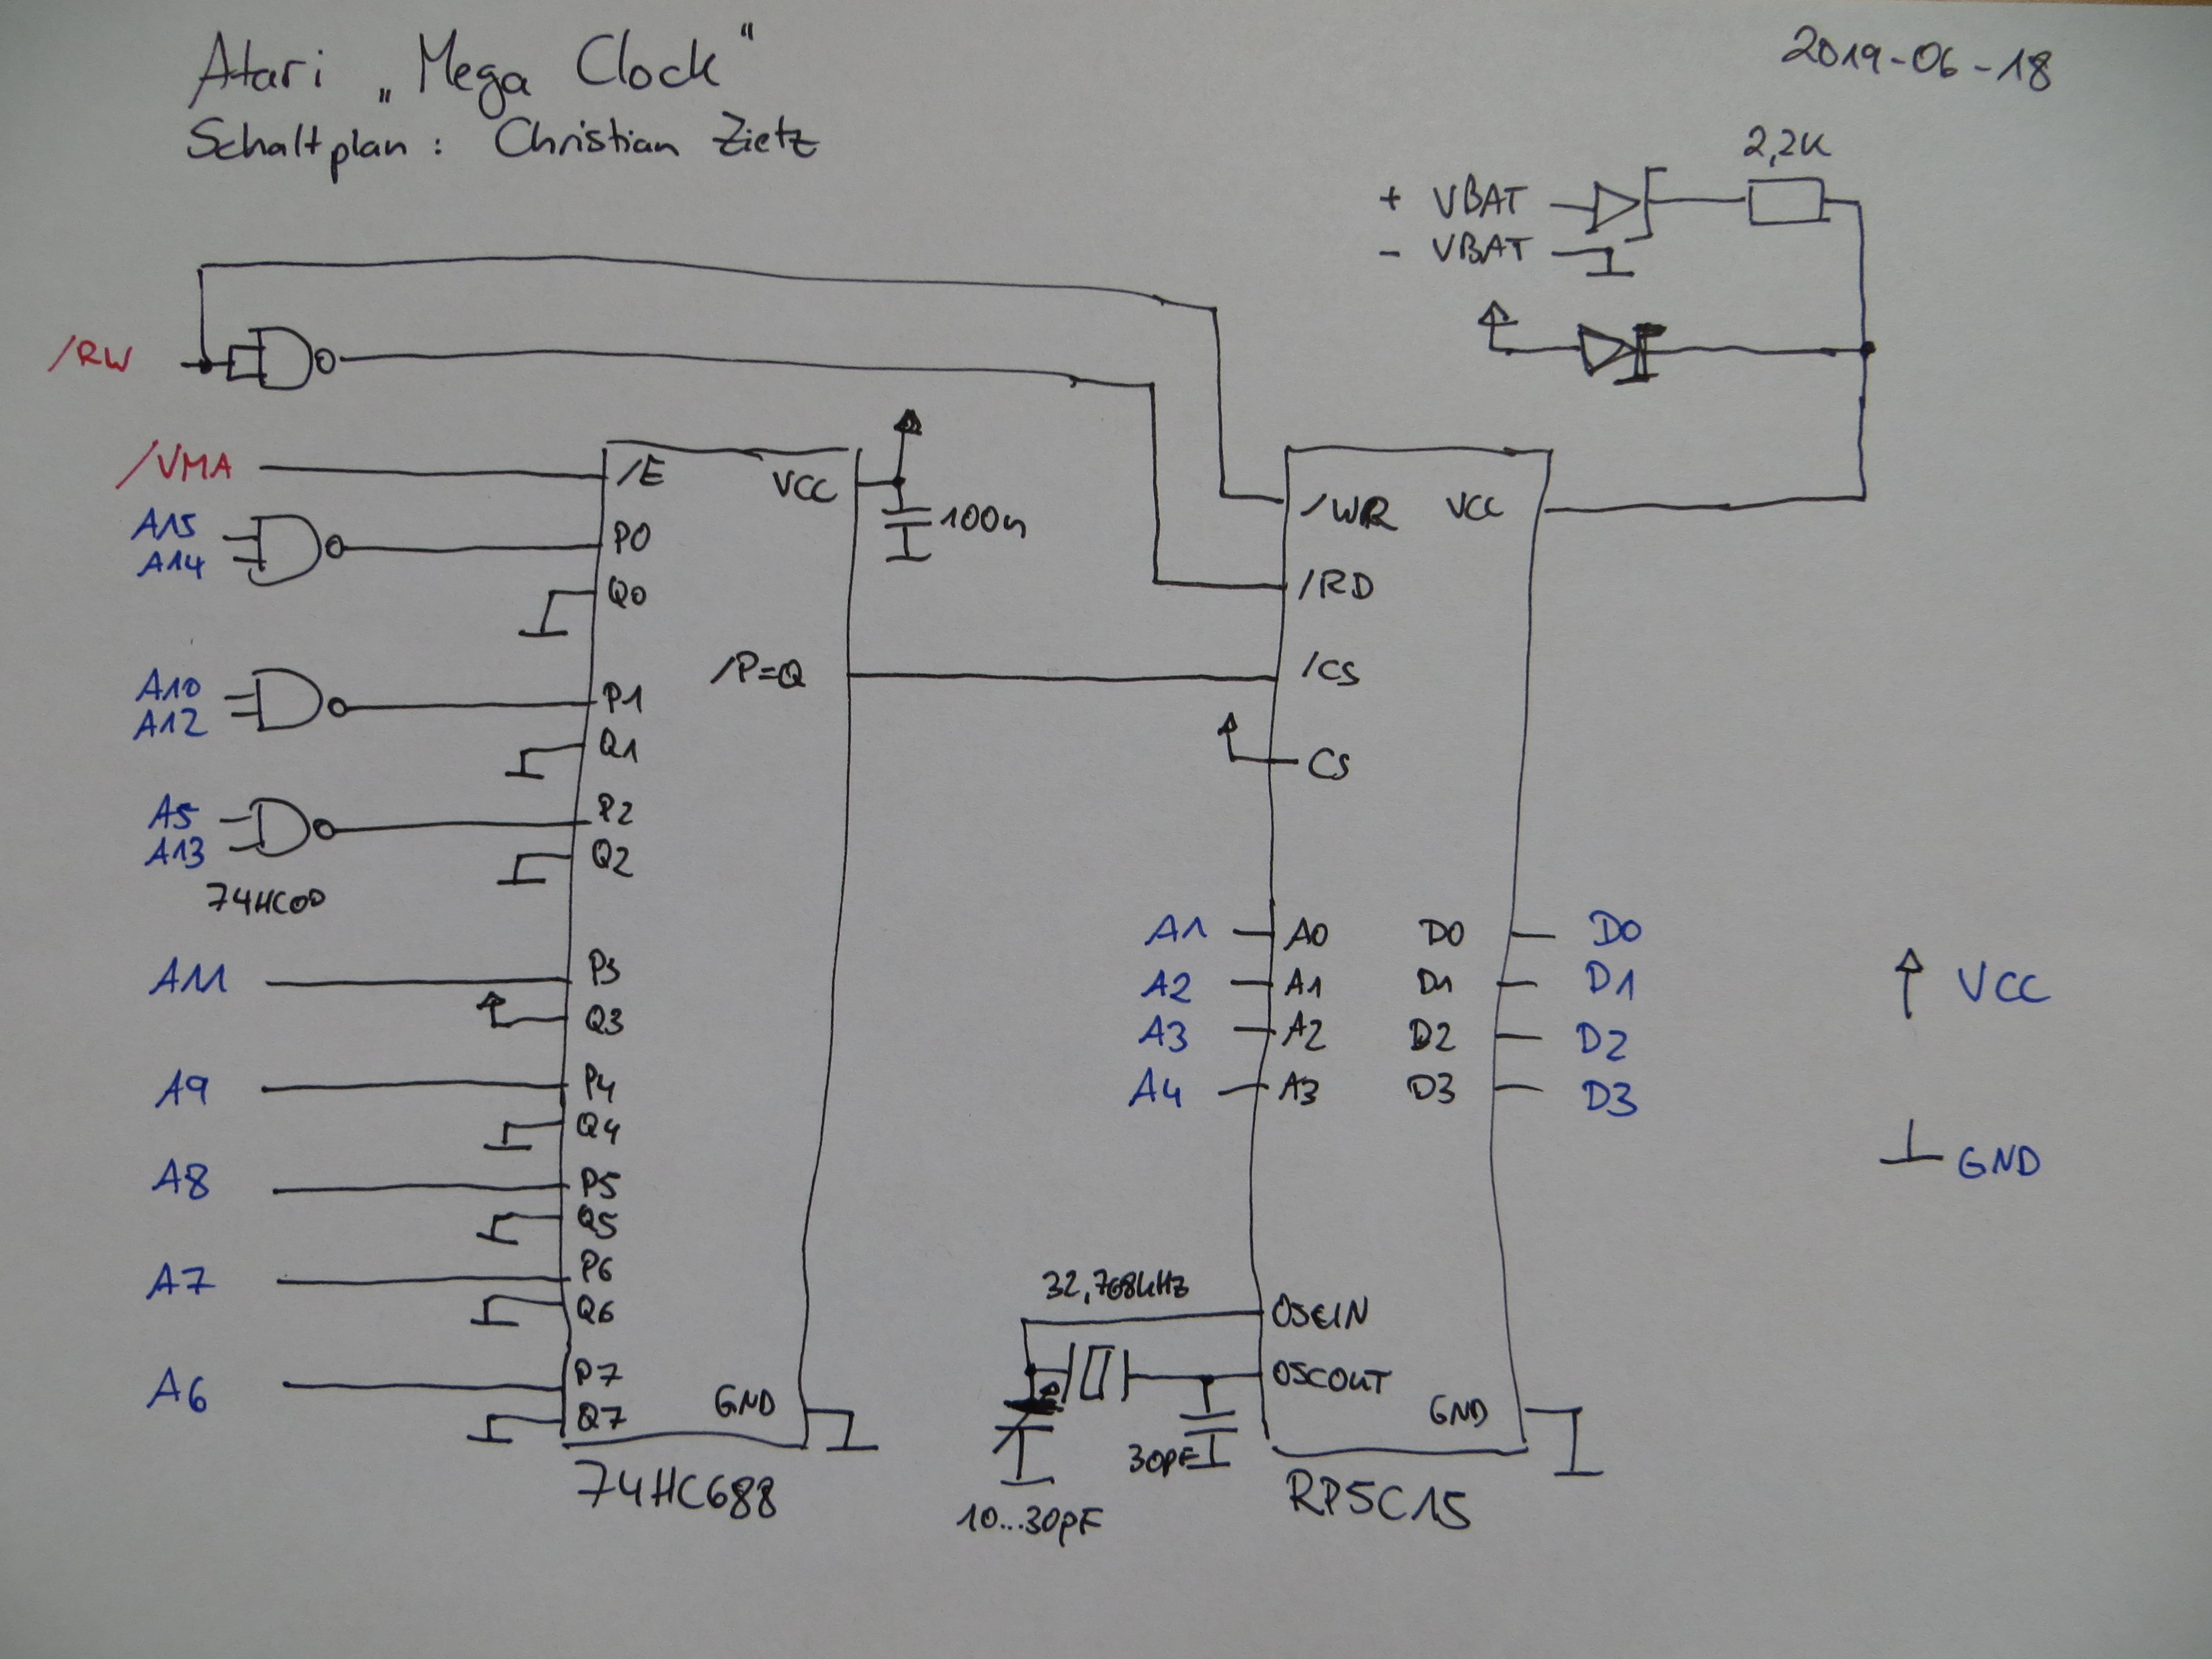 Atari „Mega Clock“
2019-06-18
Schaltplan: Christian Zietz
2,2K
+ VBAT
- VBAT
/RW
/VMA
A15
A14
A10
A12
A5
A13
74HC00
A11
A9
A8
A7
A6
/E
P0
Q0
P1
Q1
P2
Q2
P3
Q3
P4
Q4
P5
Q5
P6
Q6
P7
Q7
VCC
100n
/P=Q
GND
74HC688
/WR
/RD
/CS
CS
A1
A2
A3
A4
A0
A1
A2
A3
32,768kHz
OSCIN
OSCOUT
30pF
10...30pF
VCC
D0
D1
D2
D3
D0
D1
D2
D3
GND
RP5C15
VCC
GND